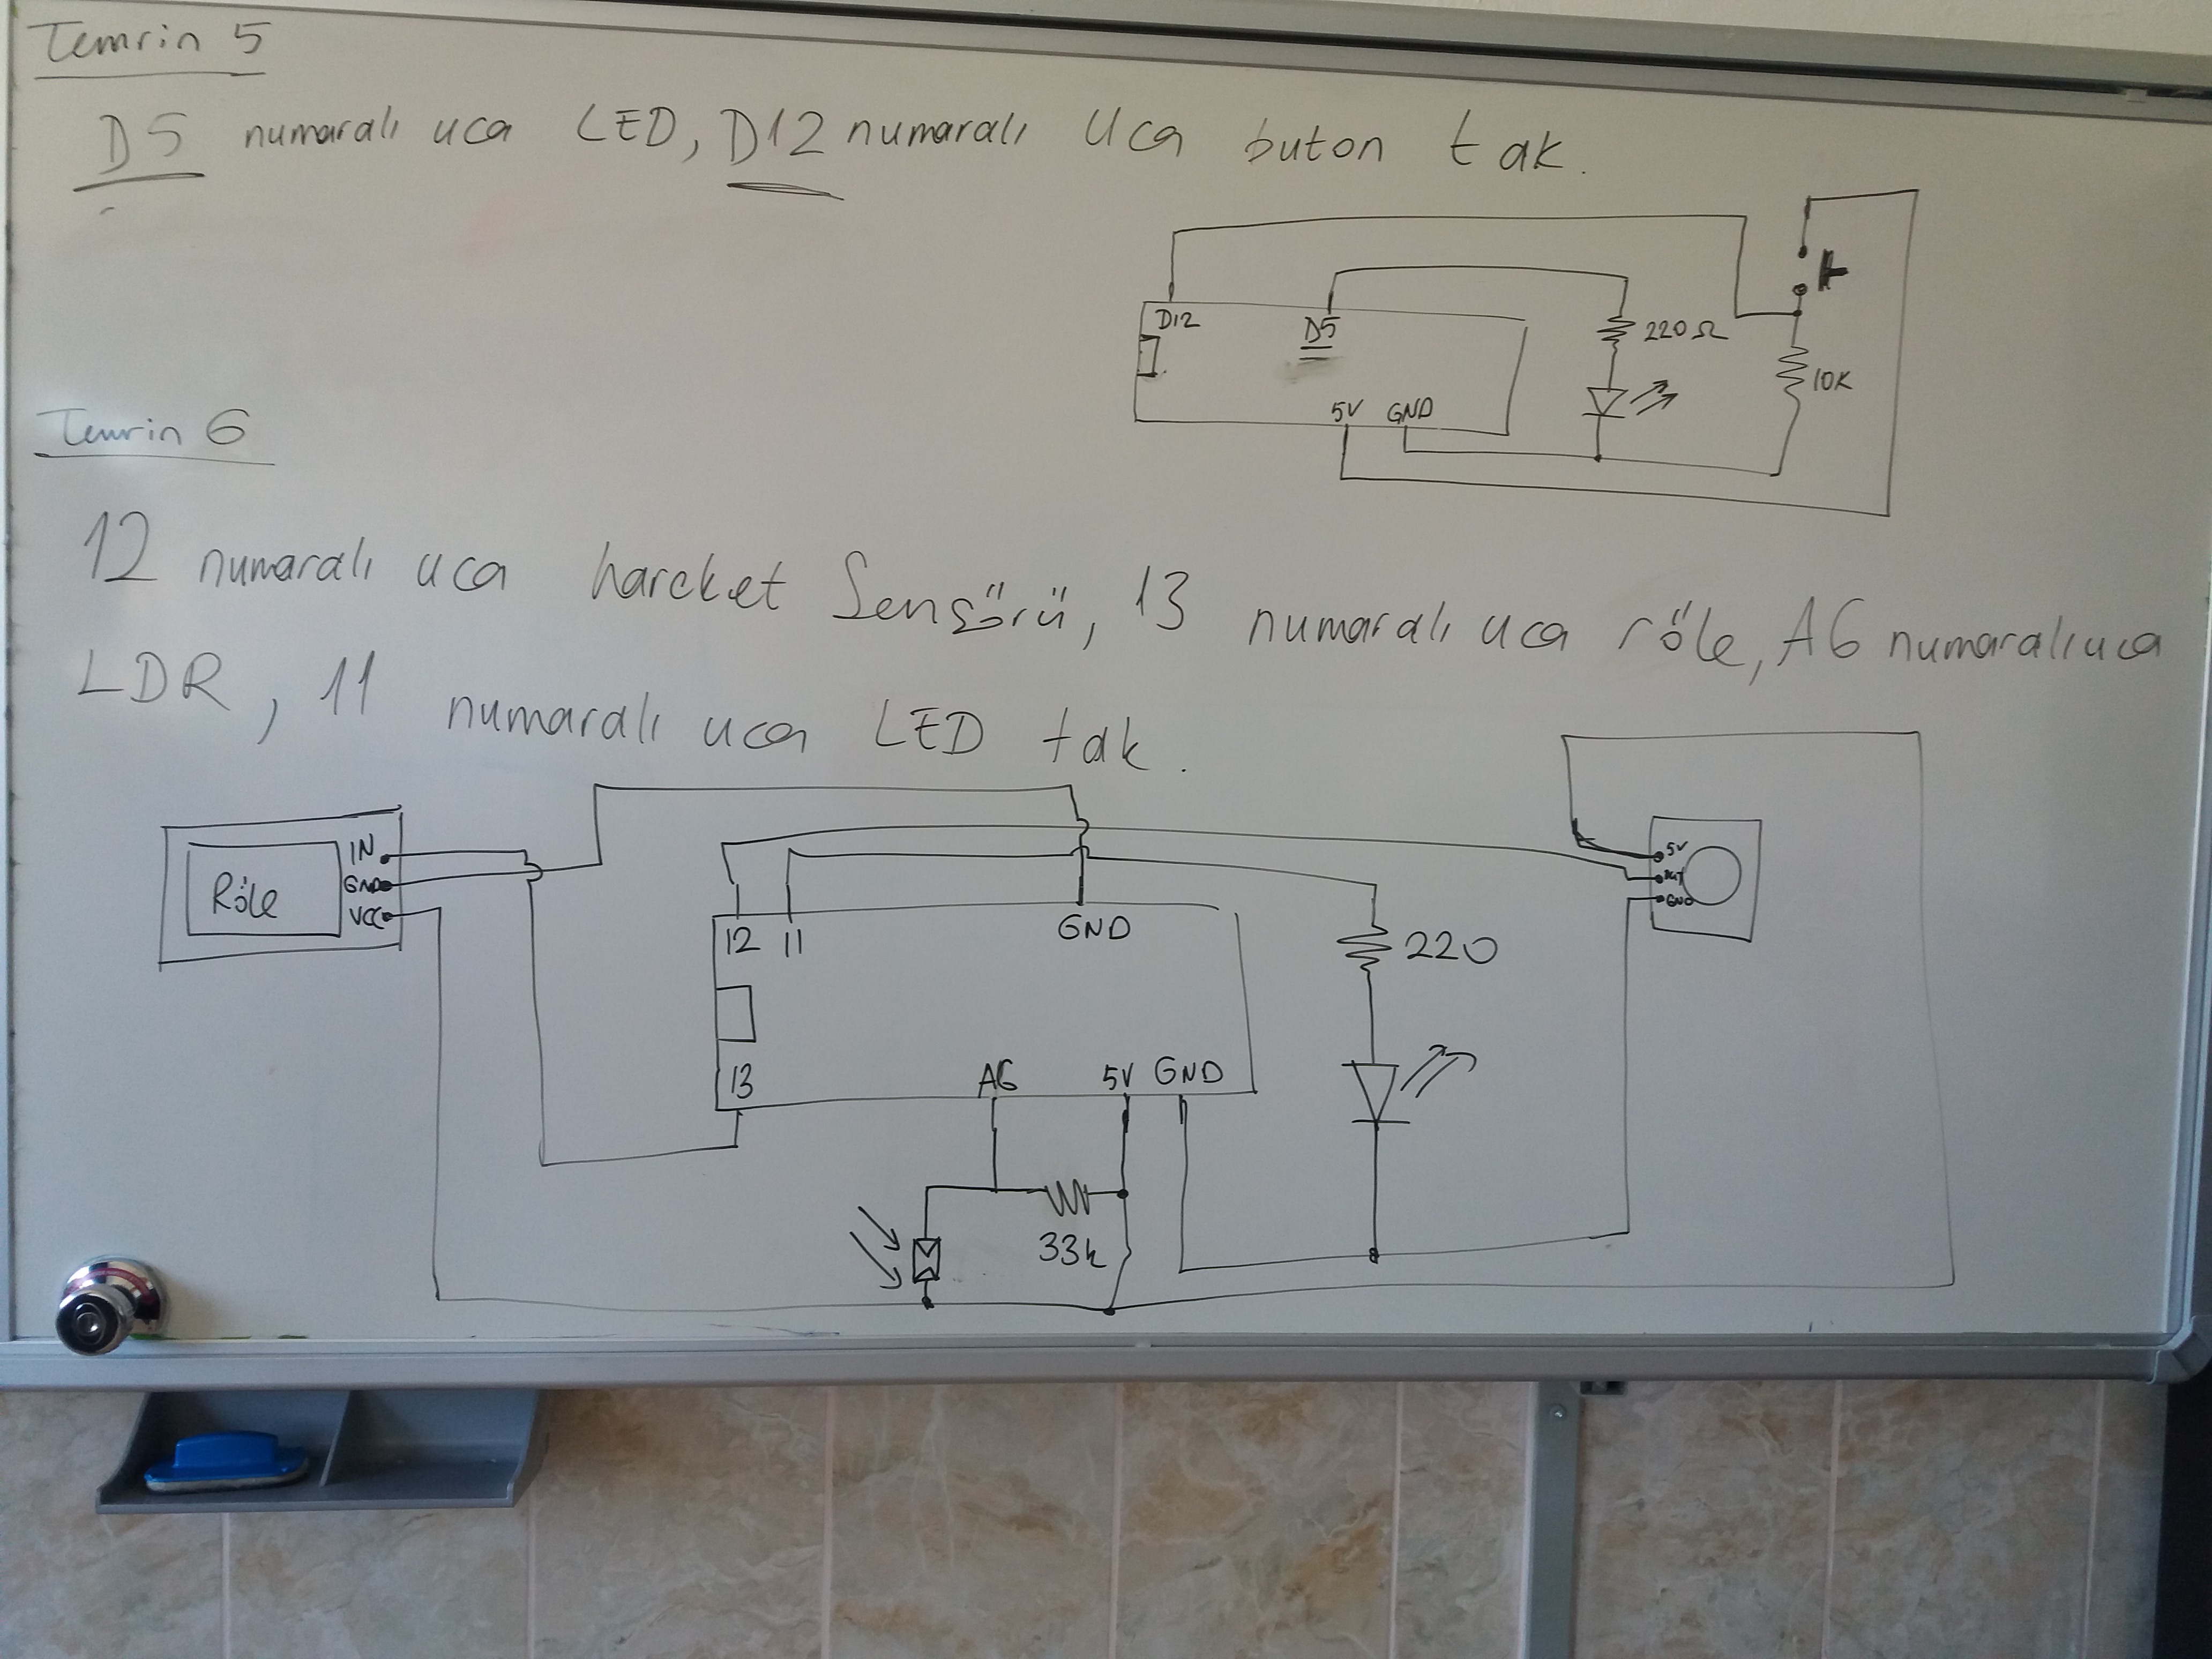 Temrin 5
D5 numaralı uca LED, D12 numaralı uca buton tak.
D12 D5
220Ω
10K
5V GND
Temrin 6
12 numaralı uca hareket Sensörü, 13 numaralı uca röle, A6 numaralı uca
LDR, 11 numaralı uca LED tak.
Röle
IN
GND
VCC
12 11 GND
13 A6 5V GND
33k
220
5V
OUT
GND